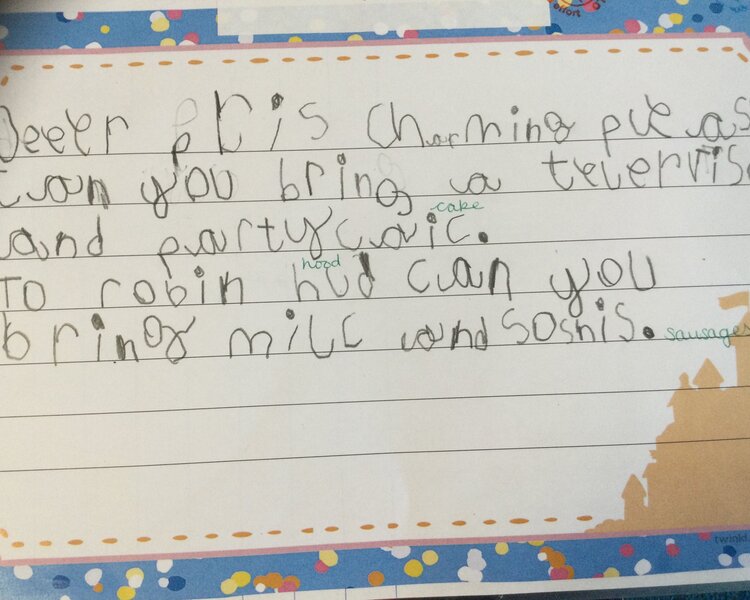 Deer pris charming pleas
can you bring a telervis
and party caic.
cake
To robin hud can you
hood
bring milc and soshis.
sausages
twinkl